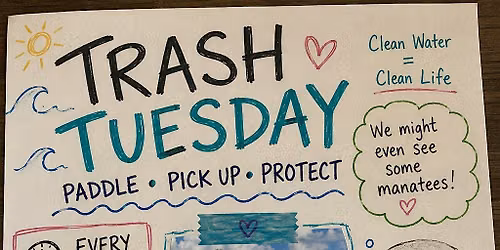 TRASH
TUESDAY
PADDLE • PICK UP • PROTECT
Clean Water
=
Clean Life
We might
even see
some
manatees!
EVERY